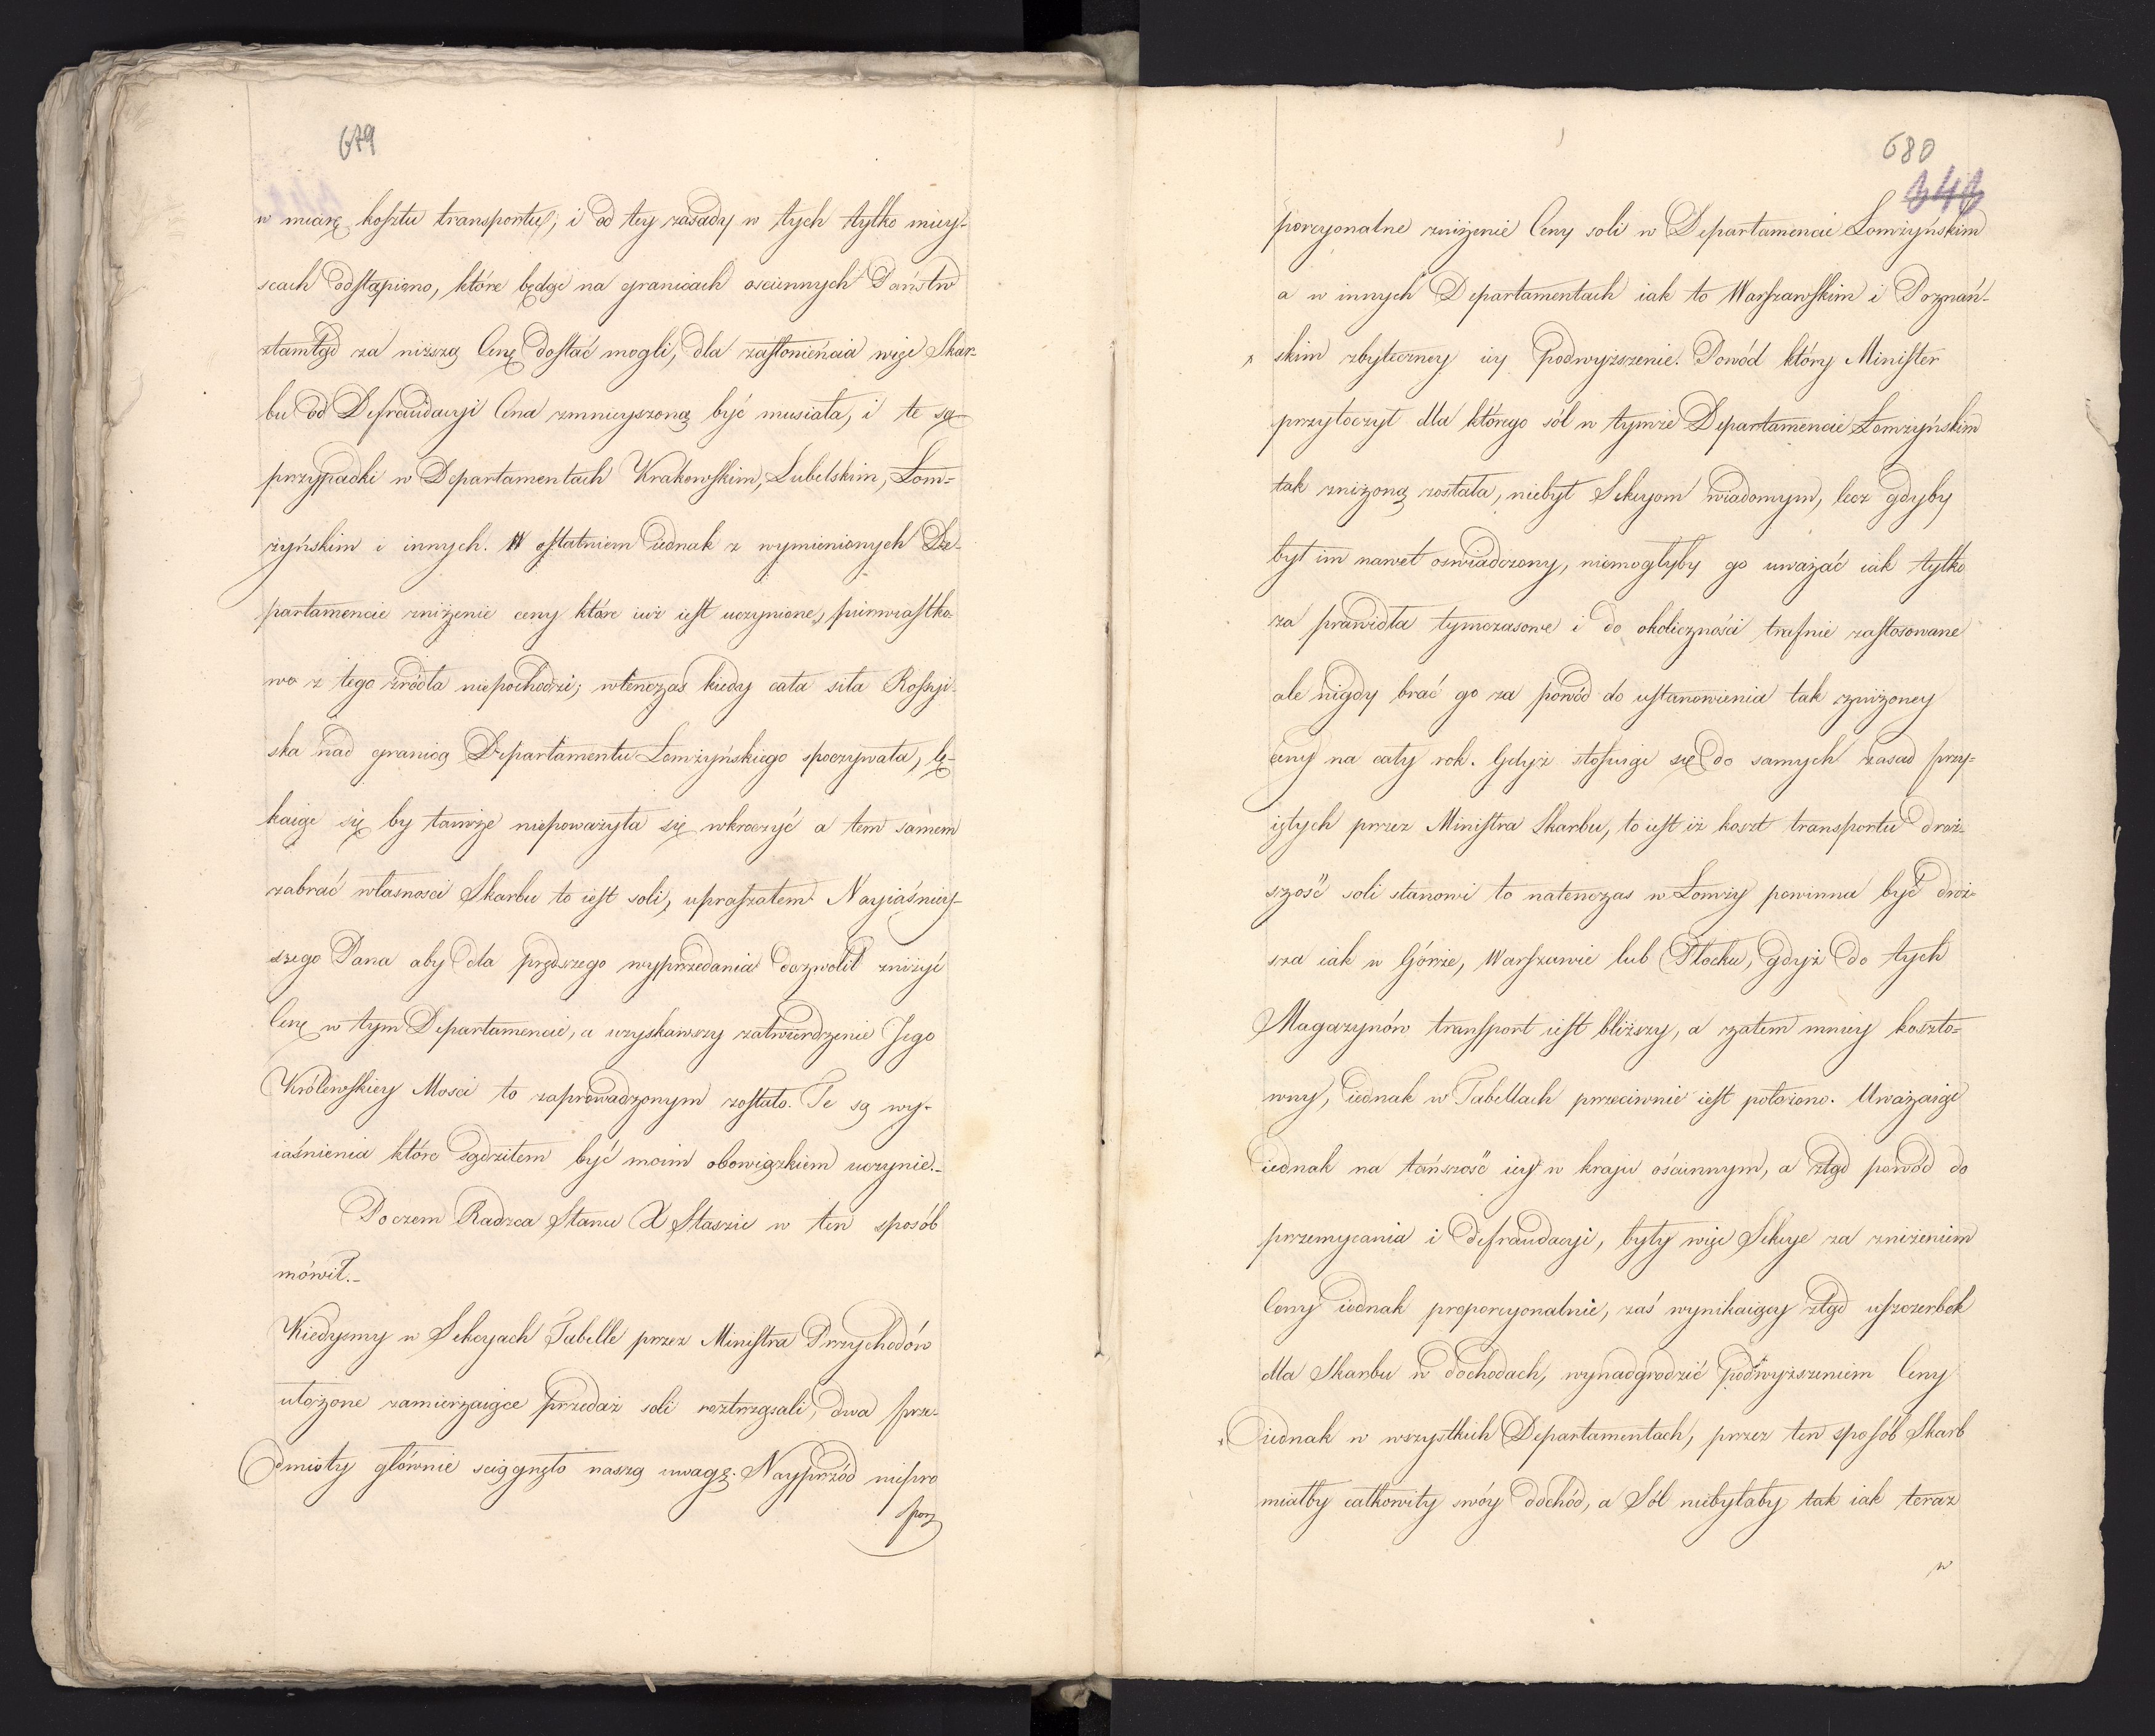 679
w miarę kosztu transportu, i od tey zasady w tych tylko miey-
scach odstąpiono, które będąc na granicach osciennych Państw
ztamtąd za niższą Cenę dostać mogli, dla zasłonieńcia więc Skar-
bu od Defraudacyi Cena zmnieyszoną być musiała, i te są
przypadki w Departamentach Krakowskim, Lubelskim, Łom-
żyńskim i innych. W ostatniem iednak z wymienionych De-
partamencie zniżenie ceny które iuż iest uczynione, pierwiastko-
wo z tego źródła niepochodzi; wtenczas kiedy cała siła Rossyi-
ska nad granicą Departamentu Łomżyńskiego spoczywała, lę-
kaiąc się by tamże niepoważyła się wkroczyć a tem samem
zabrać własności Skarbu to iest soli, upraszałem Nayiaśniey-
szego Pana aby dla prędszego wyprzedania dozwolił zniżyć
Cenę w tym Departamencie, a uzyskawszy zatwierdzenie Jego
Królewskiey Mosci to zaprowadzonym zostało. Te są wy-
iaśnienia które sądziłem być moim obowiązkiem uczynić.-
Poczem Radzca Stanu X Staszic w ten sposób
mówił.-
Kiedysmy w Sekcyach Tabelle przez Ministra Przychodów
ułożone zamierzaiące przedaż soli roztrząsali, dwa prze-
dmioty głównie sciągnęło naszą uwagę. Nayprzód niepro
por
680
porcyonalne zniżenie Ceny soli w Departamencie Łomżyńskim
a w innych Departamentach iak to Warszawskim i Poznań-
skim zbyteczney iey podwyższenie. Powód który Minister
przytoczył dla którego sól w tymże Departamencie Łomżyńskim
tak zniżoną została, niebył Sekcyom wiadomym, lecz gdyby
był im nawet oswiadczony, niemogłyby go uważać iak tylko
za prawidła tymczasowe i do okoliczności trafnie zastosowane
ale nigdy brać go za powód do ustanowienia tak zniżoney
ceny na cały rok. Gdyż stosuiąc się do samych zasad przy-
iętych przez Ministra Skarbu, to iest iż koszt transportu droż-
szość soli stanowi to natenczas w Łomży powinna być droż-
sza iak w Górze, Warszawie lub Płocku, gdyż do tych
Magazynów transport iest bliższy, a zatem mniey koszto-
wny, iednak w Tabellach przeciwnie iest położono. Uważaiąc
iednak na tańszość iey w kraju ościennym, a ztąd powód do
przemycania i defraudacyi, były więc Sekcye za zniżeniem
Ceny iednak proporcyonalnie, zaś wynikaiący ztąd uszczerbek
dla Skarbu w dochodach, wynadgrodzić podwyższeniem Ceny
iednak w wszystkich Departamentach, przez ten sposób Skarb
miałby całkowity swóy dochód, a Sól niebyłaby tak iak teraz
w